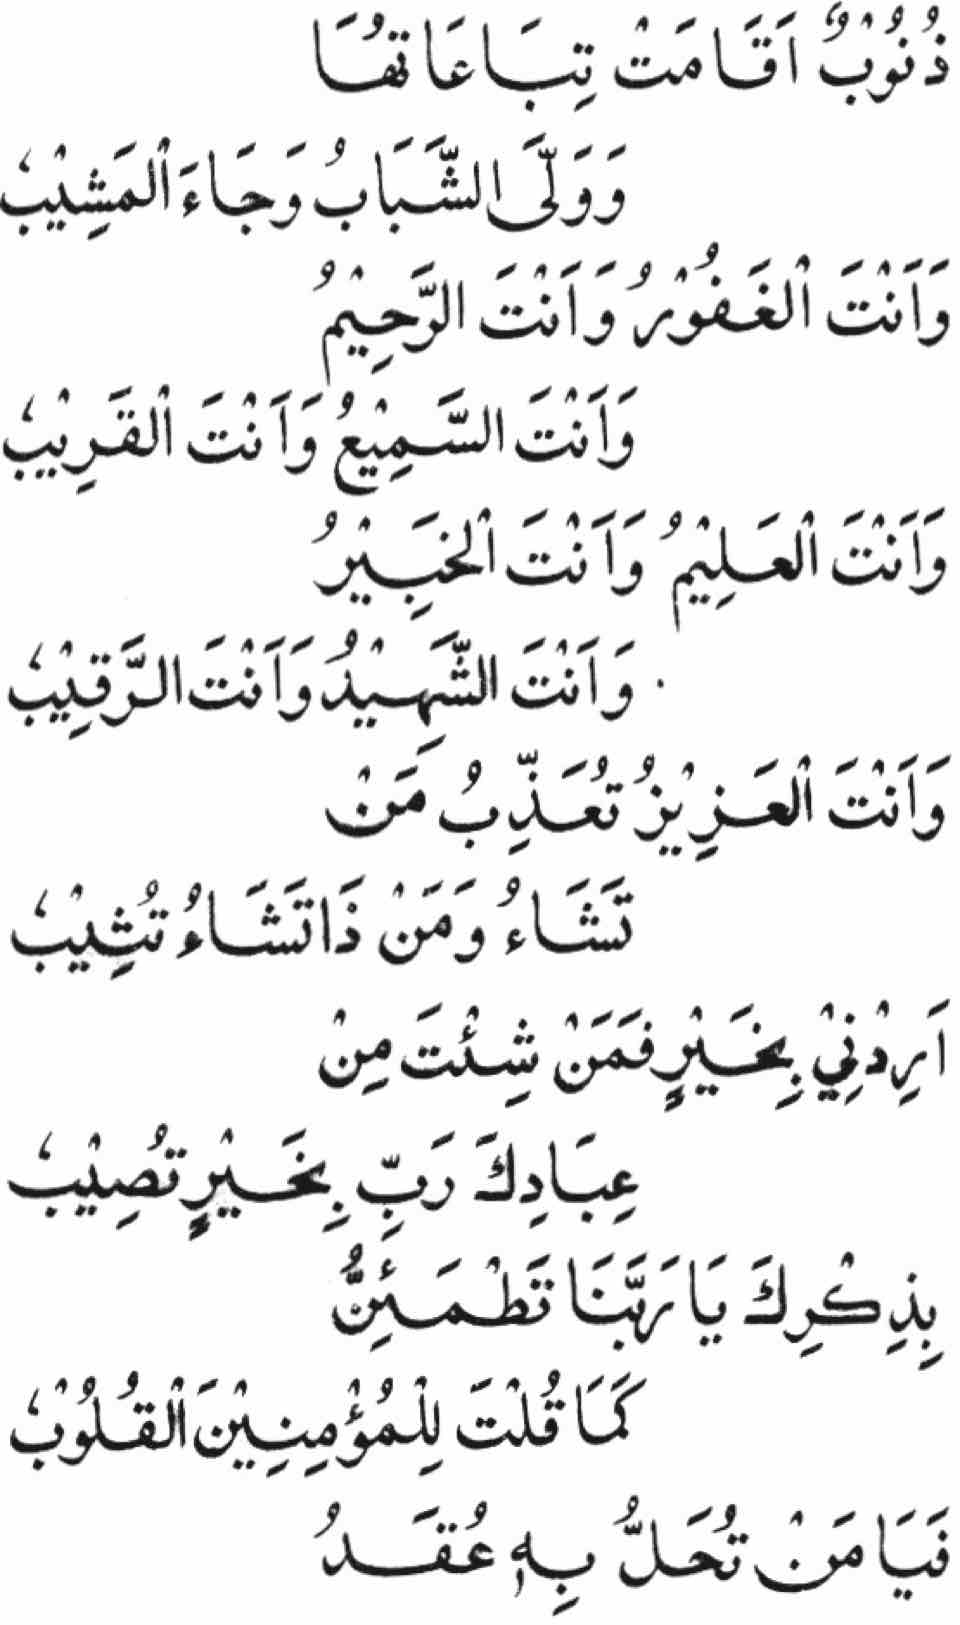 ذُنُوْبٌ اَقَامَتْ تِبَاعَاتُهَا
وَوَلَّى الشَّبَابُ وَجَاءَ الْمَشِيْبُ
وَاَنْتَ الْغَفُوْرُ وَاَنْتَ الرَّحِيْمُ
وَاَنْتَ السَّمِيْعُ وَاَنْتَ الْقَرِيْبُ
وَاَنْتَ الْعَلِيْمُ وَاَنْتَ الْخَبِيْرُ
وَاَنْتَ الشَّهِيْدُ وَاَنْتَ الرَّقِيْبُ
وَاَنْتَ الْعَزِيْزُ تُعَذِّبُ مَنْ
تَشَاءُ وَمَنْ ذَا تَشَاءُ تُثِيْبُ
اَرِدْنِيْ بِخَيْرٍ فَمَنْ شِئْتَ مِنْ
عِبَادِكَ رَبِّ بِخَيْرٍ تُصِيْبُ
بِذِكْرِكَ يَا رَبَّنَا تَطْمَئِنُّ
كَمَا قُلْتَ لِلْمُؤْمِنِيْنَ الْقُلُوْبُ
فَيَا مَنْ تُحَلُّ بِهٖ عُقَدُ